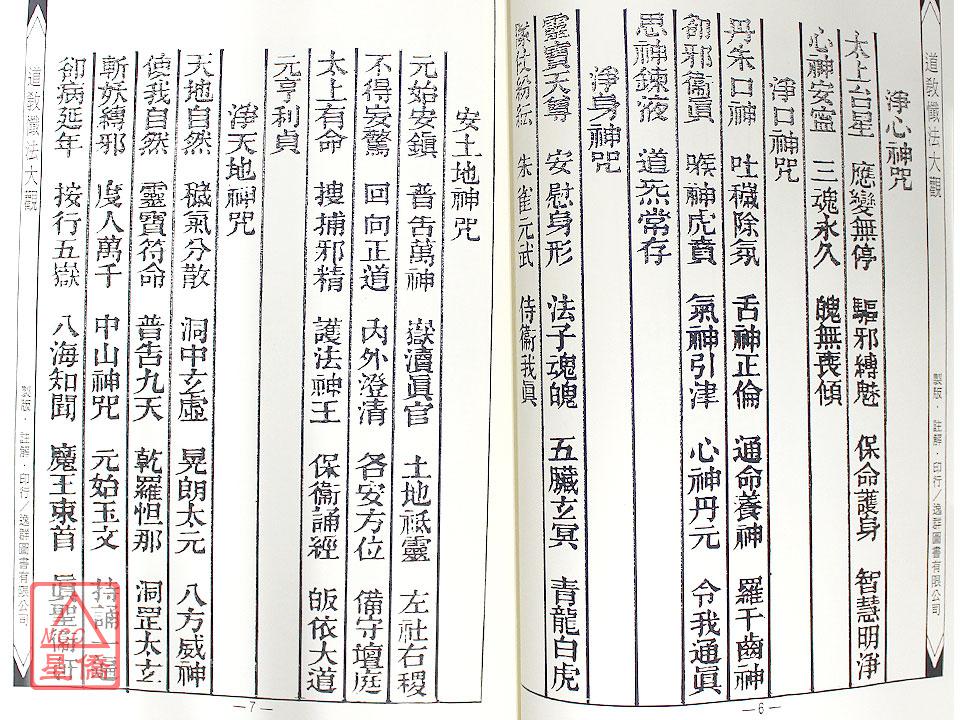 道教懺法大觀
製版・註解・印行／逸群圖書有限公司
淨心神咒
太上台星 應變無停 驅邪縛魅 保命護身 智慧明淨
心神安寧 三魂永久 魄無喪傾
淨口神咒
丹朱口神 吐穢除氛 舌神正倫 通命養神 羅千齒神
卻邪衞眞 喉神虎賁 氣神引津 心神丹元 令我通眞
思神鍊液 道炁常存
淨身神咒
靈寶天尊 安慰身形 法子魂魄 五臟玄冥 青龍白虎
隊仗紛紜 朱雀元武 侍衞我眞
—6—
安土地神咒
元始安鎮 普告萬神 嶽瀆眞官 土地祗靈 左社右稷
不得妄驚 回向正道 內外澄清 各安方位 備守壇庭
太上有命 搜捕邪精 護法神王 保衞誦經 皈依大道
元亨利貞
淨天地神咒
天地自然 穢氣分散 洞中玄虛 晃朗太元 八方威神
使我自然 靈寶符命 普告九天 乾羅怛那 洞罡太玄
斬妖縛邪 度人萬千 中山神咒 元始玉文 持誦一遍
卻病延年 按行五嶽 八海知聞 魔王束首 眞聖衞軒
—7—
道教懺法大觀
製版・註解・印行／逸群圖書有限公司
MCC
星僑